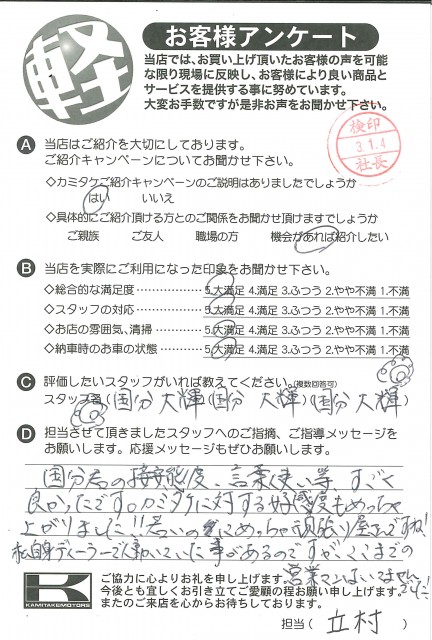 軽
お客様アンケート
当店では、お買い上げ頂いたお客様の声を可能
な限り現場に反映し、お客様により良い商品と
サービスを提供する事に努めています。
大変お手数ですが是非お声をお聞かせ下さい。
検印
31.4
社長
A 当店はご紹介を大切にしております。
ご紹介キャンペーンについてお聞かせ下さい。
◇カミタケご紹介キャンペーンのご説明はありましたでしょうか
はい いいえ
◇具体的にご紹介頂ける方とのご関係をお聞かせ頂けますでしょうか
ご親族 ご友人 職場の方 機会があれば紹介したい
B 当店を実際にご利用になった印象をお聞かせ下さい。
◇総合的な満足度 5.大満足 4.満足 3.ふつう 2.やや不満 1.不満
◇スタッフの対応 5.大満足 4.満足 3.ふつう 2.やや不満 1.不満
◇お店の雰囲気、清掃 5.大満足 4.満足 3.ふつう 2.やや不満 1.不満
◇納車時のお車の状態 5.大満足 4.満足 3.ふつう 2.やや不満 1.不満
C 評価したいスタッフがいれば教えてください。(複数回答可)
スタッフ名(国分 大輝)(国分 大輝)(国分 大輝)
D 担当させて頂きましたスタッフへのご指摘、ご指導メッセージを
お願いします。応援メッセージもぜひお願いします。
国分君の接客態度、言葉使い等、すごく
良かったです。カミタケに対する好感度もめっちゃ
上がりました!!若いのにめっちゃ頑張り屋さんですね!
私自身ディーラーで働いていた事があるのですがここまでの
営業マンはいません
でした!
K
KAMITAKEMOTORS
ご協力に心よりお礼を申し上げます。
今後とも宜しくお引き立てご愛顧の程お願い申し上げます。
またのご来店を心からお待ちしております。
担当( 立村 )